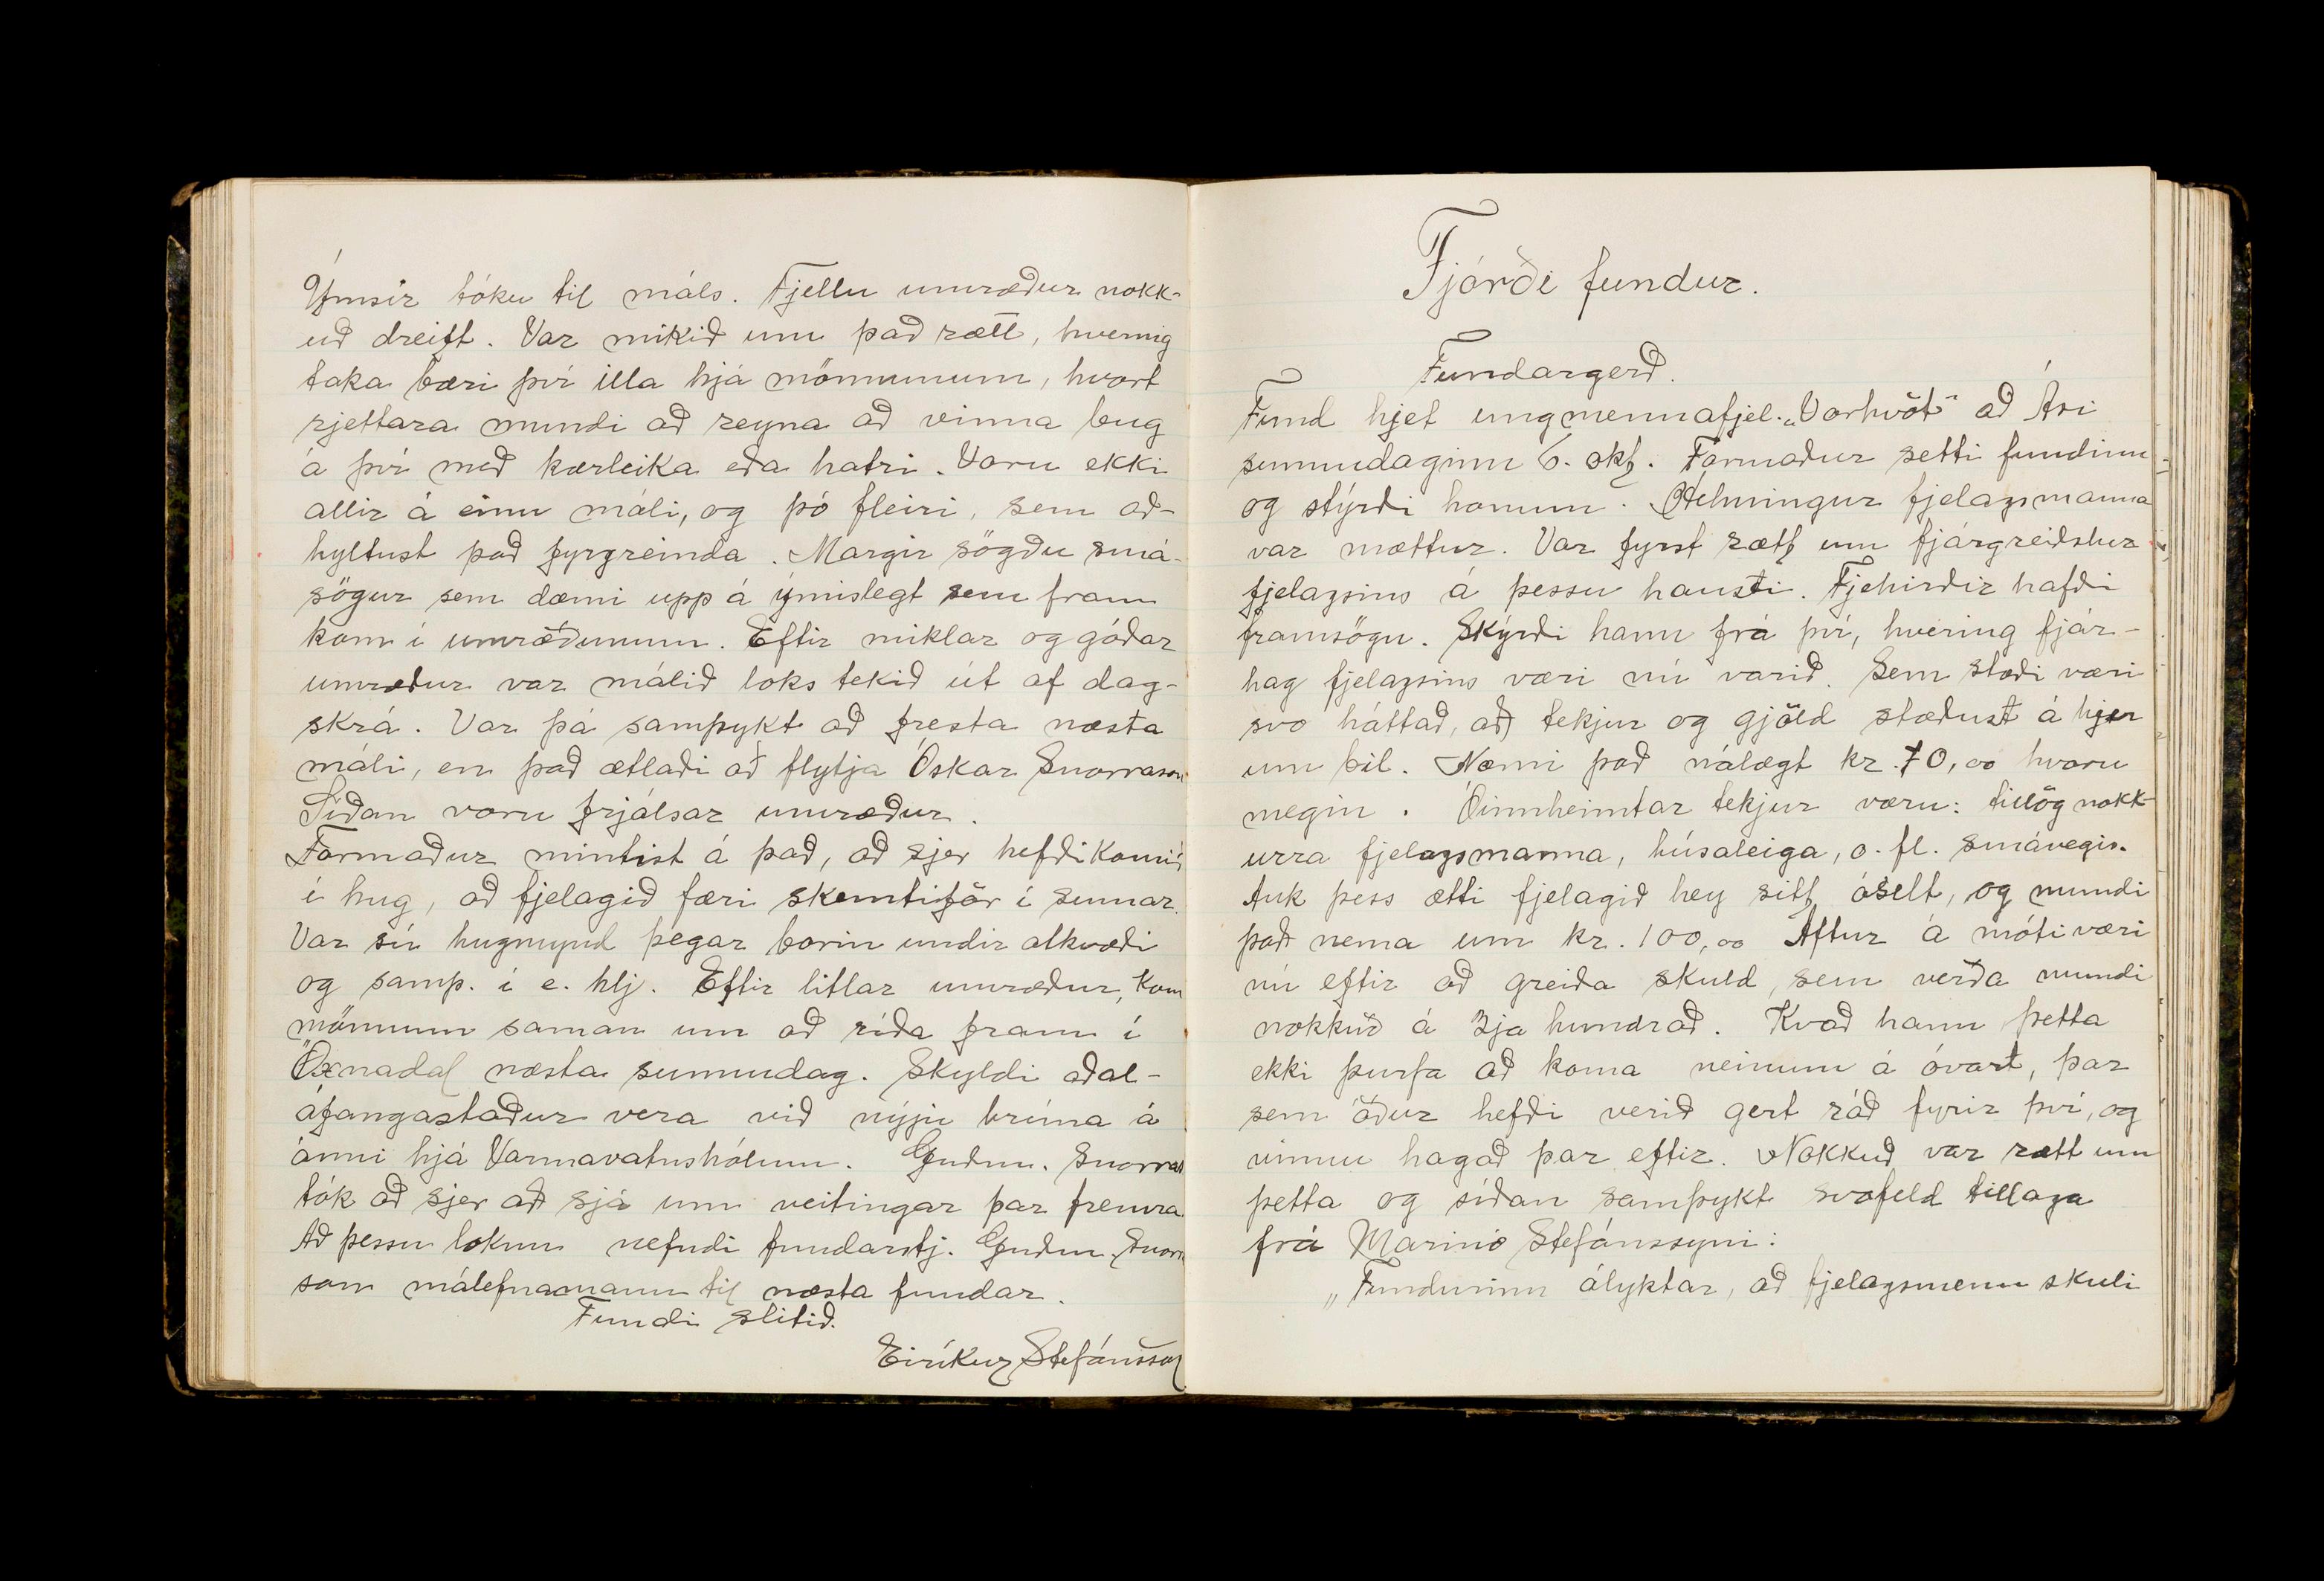 Ýmsir tóku til máls. Fjellu umræður nokk-
uð dreift. Var mikið um það rætt, hvernig
taka bæri því illa hjá mönnunum, hvort
rjettara mundi að reyna að vinna bug
á því með kærleika eða hatri. Voru ekki
allir á einu máli, og þó fleiri, sem að-
hyltust það fyrgreinda. Margir sögðu smá-
sögur sem dæmi upp á ýmislegt sem fram
kom í umræðunum. Eftir miklar og góðar
umræður var málið loks tekið út af dag-
skrá. Var þá samþykt að fresta næsta
máli, en það ætlaði að flytja Óskar Snorrason
Síðan voru frjálsar umræður.
Formaður mintist á það, að sjer hefði komið
í hug, að fjelagið færi skemtiför í sumar.
Var sú hugmynd þegar borin undir atkvæði
og samþ. í e. hlj. Eftir litlar umræður, kom
mönnum saman um að ríða fram í
Öxnadal næsta sunnudag. Skyldi aðal-
áfangastaður vera við nýju brúna á
ánni hjá Varmavatnshólum. Guðm. Snorras
tók að sjer að sjá um veitingar þar fremra.
Að þessu loknu nefndi fundarstj. Guðm. Snorra
son málefnamann til næsta fundar.
Fundi slitið.
Eiríkur Stefánsson
Fjórði fundur.
Fundargerð.
Fund hjet ungmennafjel. „Vorhvöt“ að Ási
sunnudaginn 6. okt. Formaður setti fundinn
og stýrði honum. Helmingur fjelagsmanna
var mættur. Var fyrst rætt um fjárgreiðslur
fjelagsins á þessu hausti. Fjehirðir hafði
framsögu. Skýrði hann frá því, hvernig fjár-
hag fjelagsins væri nú varið. Sem stæði væri
svo háttað, að tekjur og gjöld stæðust á hjer
um bil. Næmi það nálægt kr. 70,oo hvoru
megin. Óinnheimtar tekjur væru: tillög nokk-
urra fjelagsmanna, húsaleiga, o. fl. smávegis.
Auk þess ætti fjelagið hey sitt óselt, og mundi
það nema um kr. 100,oo Aftur á móti væri
nú eftir að greiða skuld, sem verða mundi
nokkuð á 3ja hundrað. Kvað hann þetta
ekki þurfa að koma neinum á óvart, þar
sem áður hefði verið gert ráð fyrir því, og
vinnu hagað þar eftir. Nokkuð var rætt um
þetta og síðan samþykt svofeld tillaga
frá Marinó Stefánssyni:
„Fundurinn ályktar, að fjelagsmenn skuli